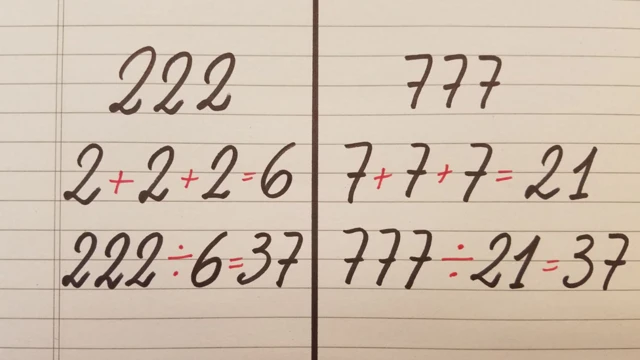 222
2+2+2=6
222÷6=37
777
7+7+7=21
777÷21=37